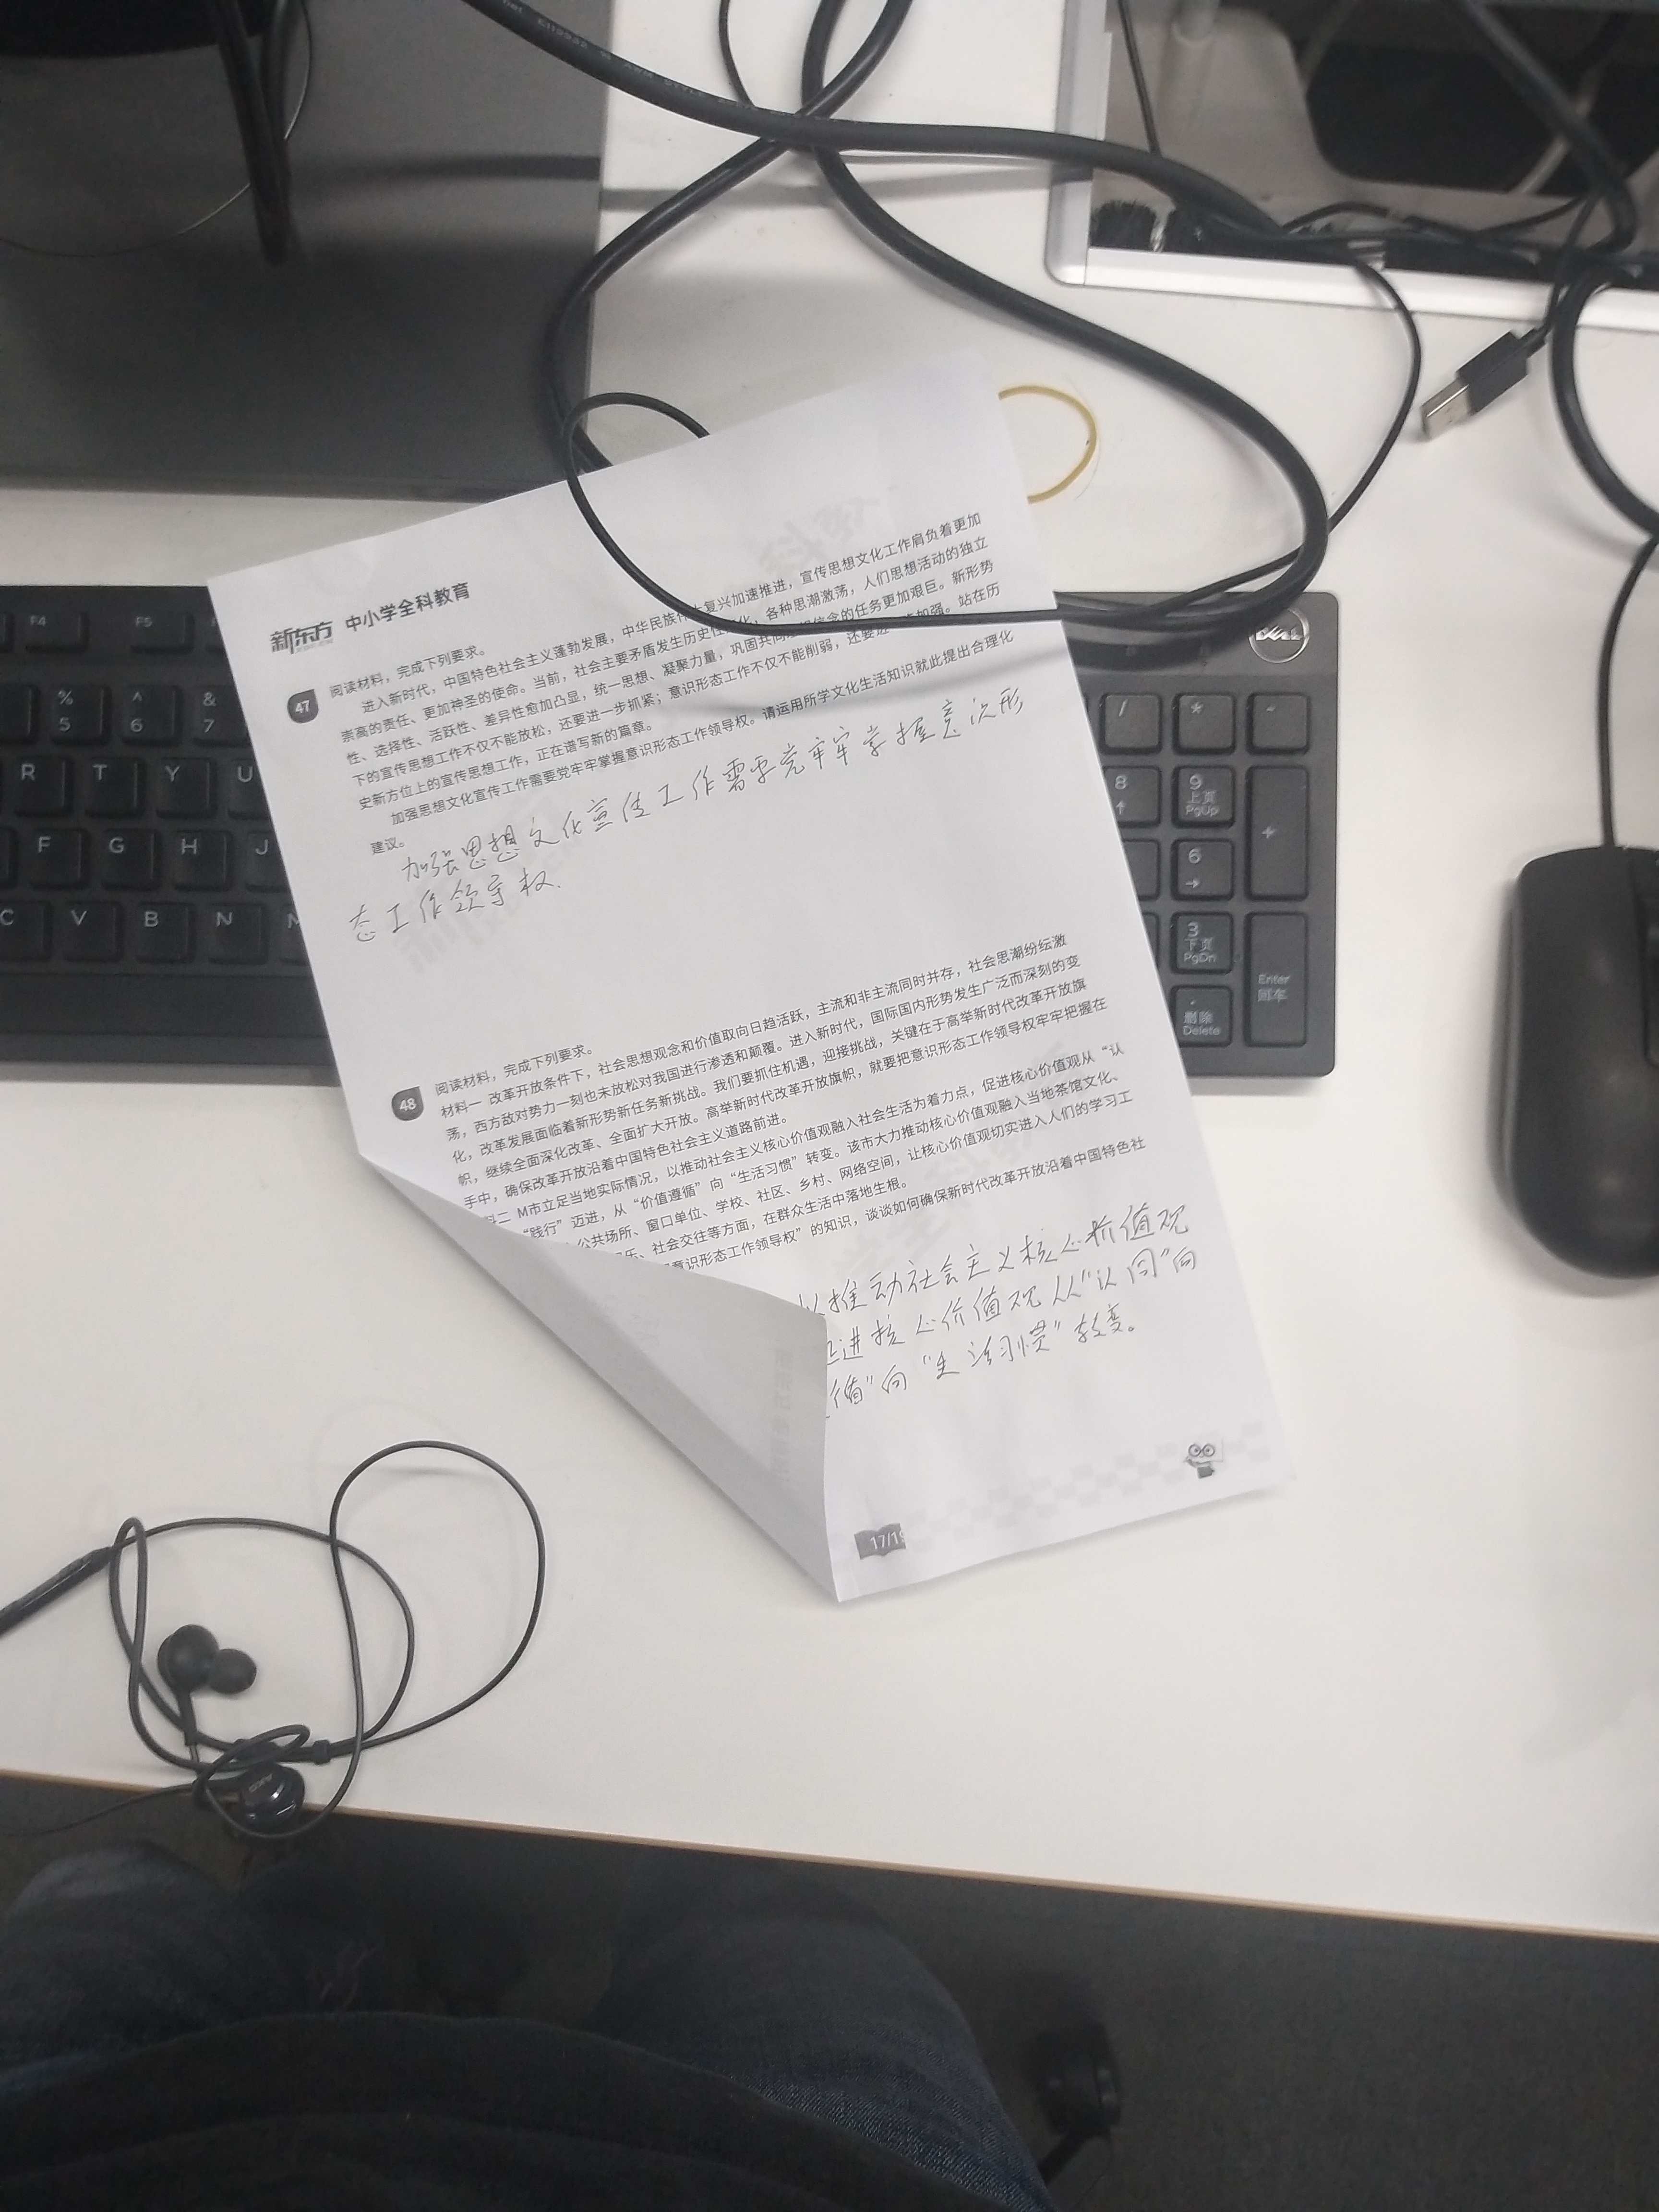 新东方 中小学全科教育
47 阅读材料，完成下列要求。
进入新时代，中国特色社会主义蓬勃发展，中华民族伟大复兴加速推进，宣传思想文化工作肩负着更加
崇高的责任、更加神圣的使命。当前，社会主要矛盾发生历史性变化，各种思潮激荡，人们思想活动的独立
性、选择性、活跃性、差异性愈加凸显，统一思想、凝聚力量，巩固共同理想信念的任务更加艰巨。新形势
下的宣传思想工作不仅不能放松，还要进一步抓紧；意识形态工作不仅不能削弱，还要进一步加强。站在历
史新方位上的宣传思想工作，正在谱写新的篇章。
加强思想文化宣传工作需要党牢牢掌握意识形态工作领导权。请运用所学文化生活知识就此提出合理化
建议。
加强思想文化宣传工作需要党牢牢掌握意识形
态工作领导权.
48 阅读材料，完成下列要求。
材料一 改革开放条件下，社会思想观念和价值取向日趋活跃，主流和非主流同时并存，社会思潮纷纭激
荡，西方敌对势力一刻也未放松对我国进行渗透和颠覆。进入新时代，国际国内形势发生广泛而深刻的变
化，改革发展面临着新形势新任务新挑战。我们要抓住机遇，迎接挑战，关键在于高举新时代改革开放旗
帜，继续全面深化改革、全面扩大开放。高举新时代改革开放旗帜，就要把意识形态工作领导权牢牢把握在
手中，确保改革开放沿着中国特色社会主义道路前进。
料二 M市立足当地实际情况，以推动社会主义核心价值观融入社会生活为着力点，促进核心价值观从“认
“践行”迈进，从“价值遵循”向“生活习惯”转变。该市大力推动核心价值观融入当地茶馆文化、
公共场所、窗口单位、学校、社区、乡村、网络空间，让核心价值观切实进入人们的学习工
乐、社会交往等方面，在群众生活中落地生根。
意识形态工作领导权”的知识，谈谈如何确保新时代改革开放沿着中国特色社
以推动社会主义核心价值观
进核心价值观从“认同”向
值”向“生活习惯”转变。
17/19
F4 F5
% 5 ^ 6 & 7
R T Y U
F G H J
C V B N
DELL
/ * -
8 9 上页 PgUp +
6
3 下页 PgDn
. 删除 Delete Enter 回车
AKG